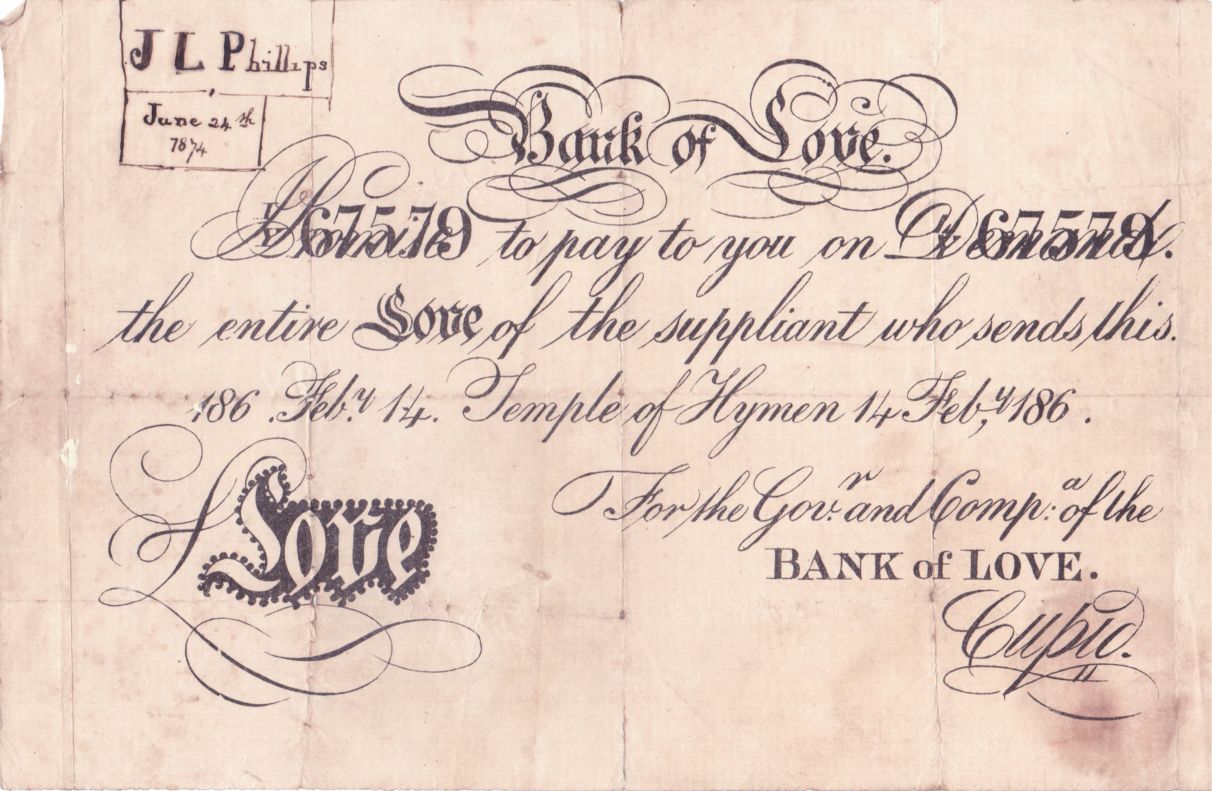 J L Phillips
June 24th
1874
Bank of Love.
I Promise 67579 to pay to you on Demand. 67579
the entire Love of the suppliant who sends this.
186 . Feb.y 14. Temple of Hymen 14 Feb,y 186 .
£ Love
For the Gov.r and Comp:a of the
BANK of LOVE.
Cupid.